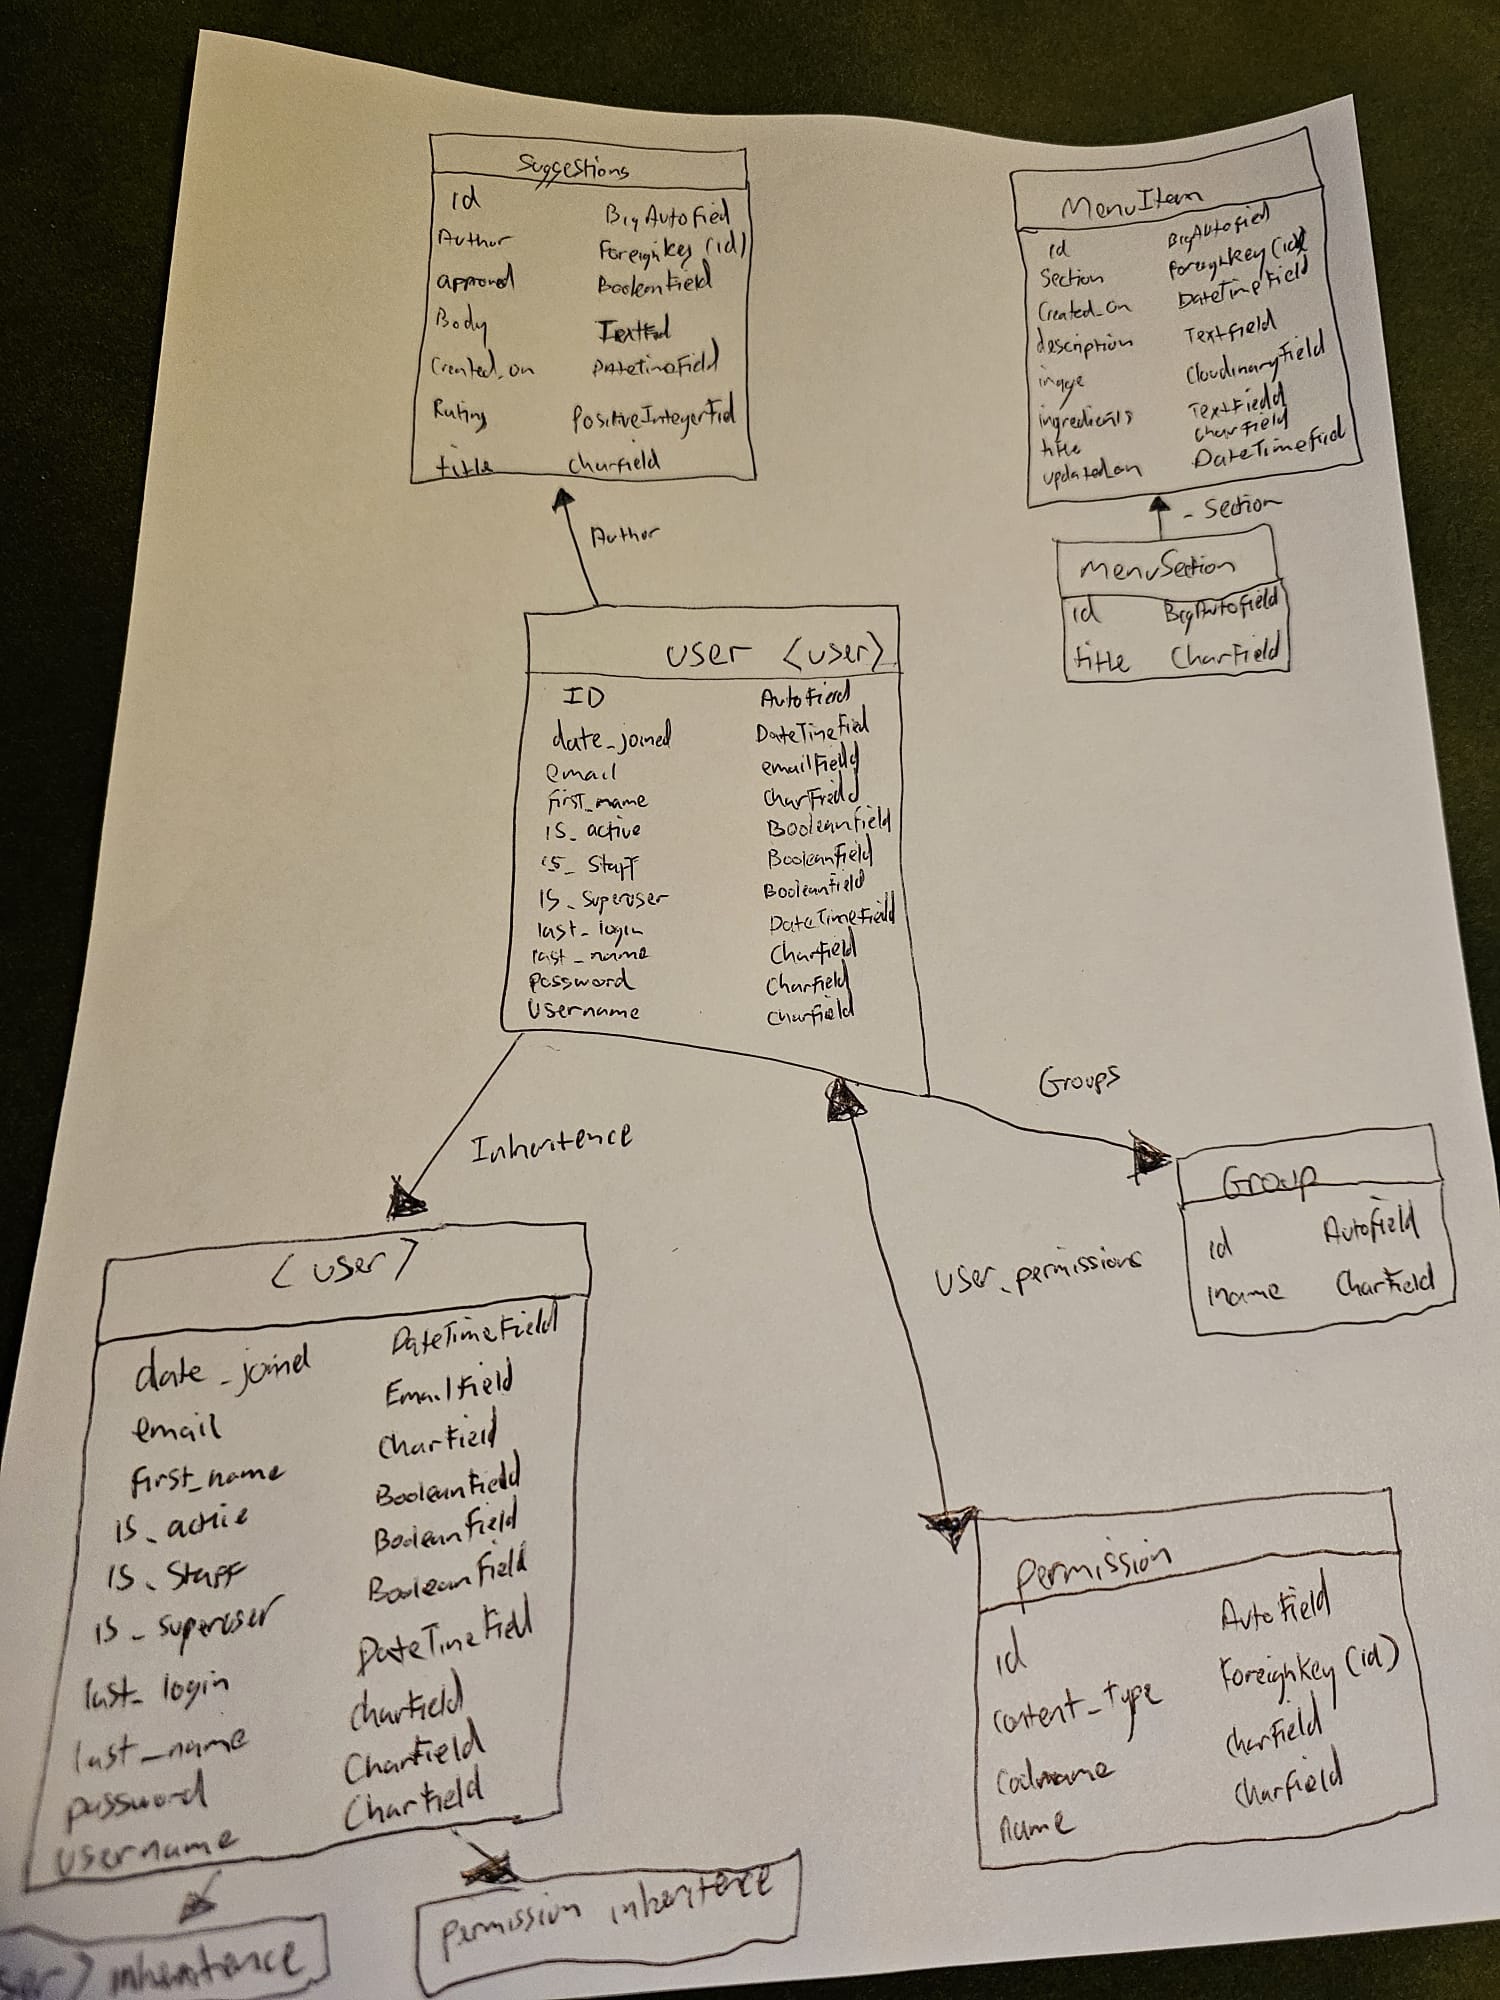 Suggestions
id BigAutoFied
Author ForeignKey (id)
approved BooleanField
Body
Created_on DateTimeField
Rating PositiveIntegerFied
title Charfield
Author
MenuItem
id BigAutofied
Section ForeignKey (id)
Created_on DateTimeField
description Textfield
image CloudinaryField
ingredients TextField
title Charfield
updated_on DateTimeFied
- Section
MenuSection
id BigAutofield
title CharField
user <user>
ID AutoField
date_joined DateTimeFied
email emailField
first_name CharField
is_active BooleanField
is_staff BooleanField
is_superuser BooleanField
last_login DateTimeField
last_name Charfield
password Charfield
Username Charfield
Inheritence
Groups
Group
id Autofield
name CharField
User_permissions
<user>
date_joined DateTimeField
email EmailField
first_name CharField
is_active BooleanField
is_staff BooleanField
is_superuser BooleanField
last_login DateTimeField
last_name CharField
password CharField
username CharField
Permission
id AutoField
content_type ForeignKey (id)
codename CharField
name CharField
permission inheritence
ser> inheritence